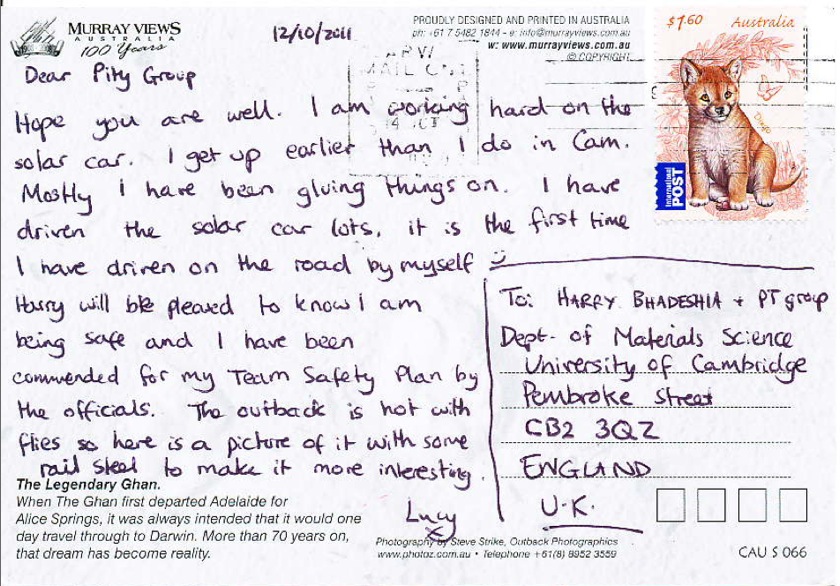 MURRAY VIEWS
AUSTRALIA
100 Years
12/10/2011
PROUDLY DESIGNED AND PRINTED IN AUSTRALIA
ph: +61 7 5482 1844 - e: info@murrayviews.com.au
w: www.murrayviews.com.au
© COPYRIGHT
$1.60 Australia
Dingo
International
POST
Dear Group
Hope you are well. I am working hard on the
solar car. I get up earlier than I do in Cam.
Mostly I have been gluing things on. I have
driven the solar car lots, it is the first time
I have driven on the road by myself
Harry will be pleased to know I am
being safe and I have been
commended for my Team Safety Plan by
the officials. The outback is hot with
flies so here is a picture of it with some
rail steel to make it more interesting.
Lucy
x
To: HARRY BHADESHIA + PT group
Dept. of Materials Science
University of Cambridge
Pembroke Street
CB2 3QZ
ENGLAND
U.K.
The Legendary Ghan.
When The Ghan first departed Adelaide for
Alice Springs, it was always intended that it would one
day travel through to Darwin. More than 70 years on,
that dream has become reality.
Photography by Steve Strike, Outback Photographics
www.photoz.com.au • Telephone +61(8) 8952 3559
CAU S 066